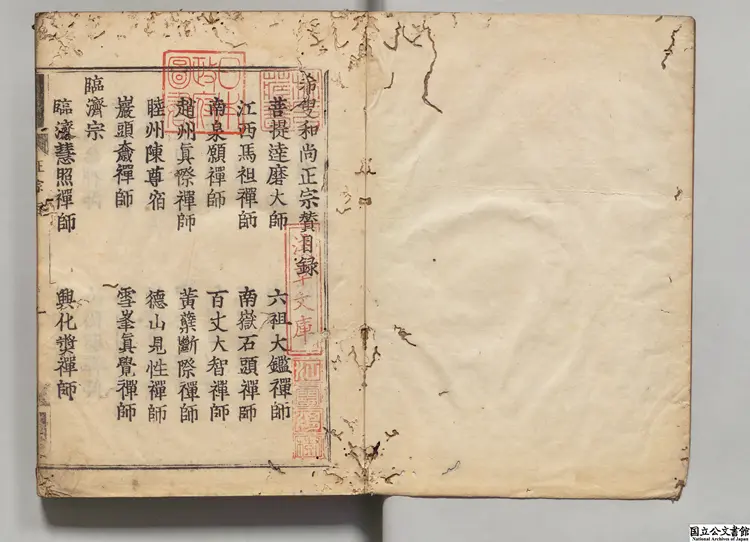 希叟和尚正宗贊目録
菩提達磨大師 六祖大鑑禪師
江西馬祖禪師 南嶽石頭禪師
南泉願禪師 百丈大智禪師
趙州眞際禪師 黃蘗斷際禪師
睦州陳尊宿 德山見性禪師
巖頭奯禪師 雪峯眞覺禪師
臨濟宗
臨濟慧照禪師 興化奘禪師
日本政府圖書
淺草文庫
国立公文書館
National Archives of Japan